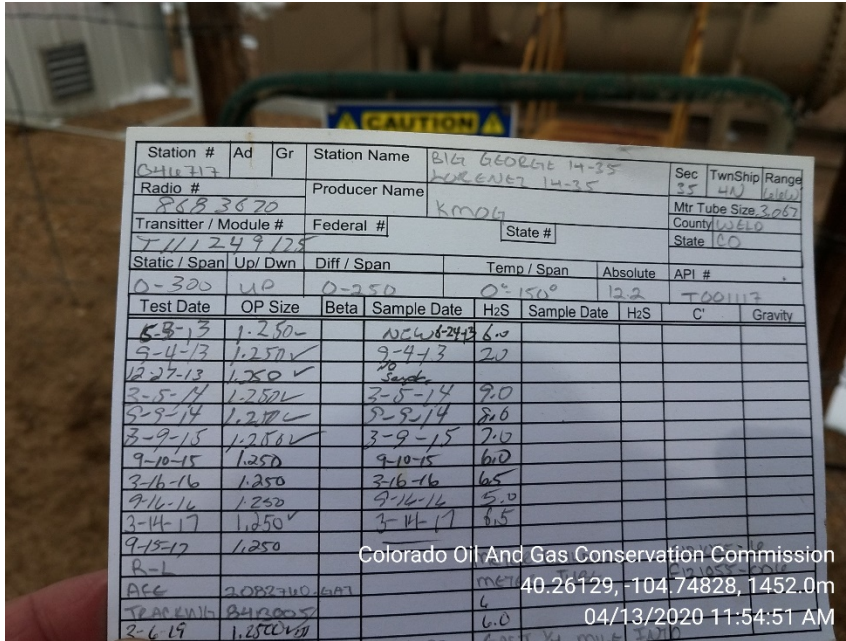 CAUTION
Station # Ad Gr Station Name BIG GEORGE 14-35
LORENEZ 14-35
Sec 35 TwnShip 4N Range 66W
Radio # 8683670 Producer Name KMOG
Mtr Tube Size 3.067
Transitter / Module # Federal # State # County WELD
State CO
Static / Span Up/ Dwn Diff / Span Temp / Span Absolute API #
0-300 UP 0-250 0°-150° 12.2 T001117
Test Date OP Size Beta Sample Date H2S Sample Date H2S C' Gravity
1.250 NEW 6.0
9-4-13 1.250 ✓ 9-4-13
12-27-13 1.250 ✓ No Sample
3-5-14 1.250 ✓ 3-5-14 9.0
9-9-14 1.250 ✓ 9-9-14 8.0
3-9-15 1.250 ✓ 3-9-15 7.0
9-10-15 1.250 9-10-15 6.0
3-16-16 1.250 3-16-16 6.5
9-16-16 1.250 9-16-16 5.0
3-14-17 1.250 ✓ 3-14-17 6.5
9-15-17 1.250
R-L
AFE
TRACKING
2-6-19 6.0
Colorado Oil And Gas Conservation Commission
40.26129, -104.74828, 1452.0m
04/13/2020 11:54:51 AM